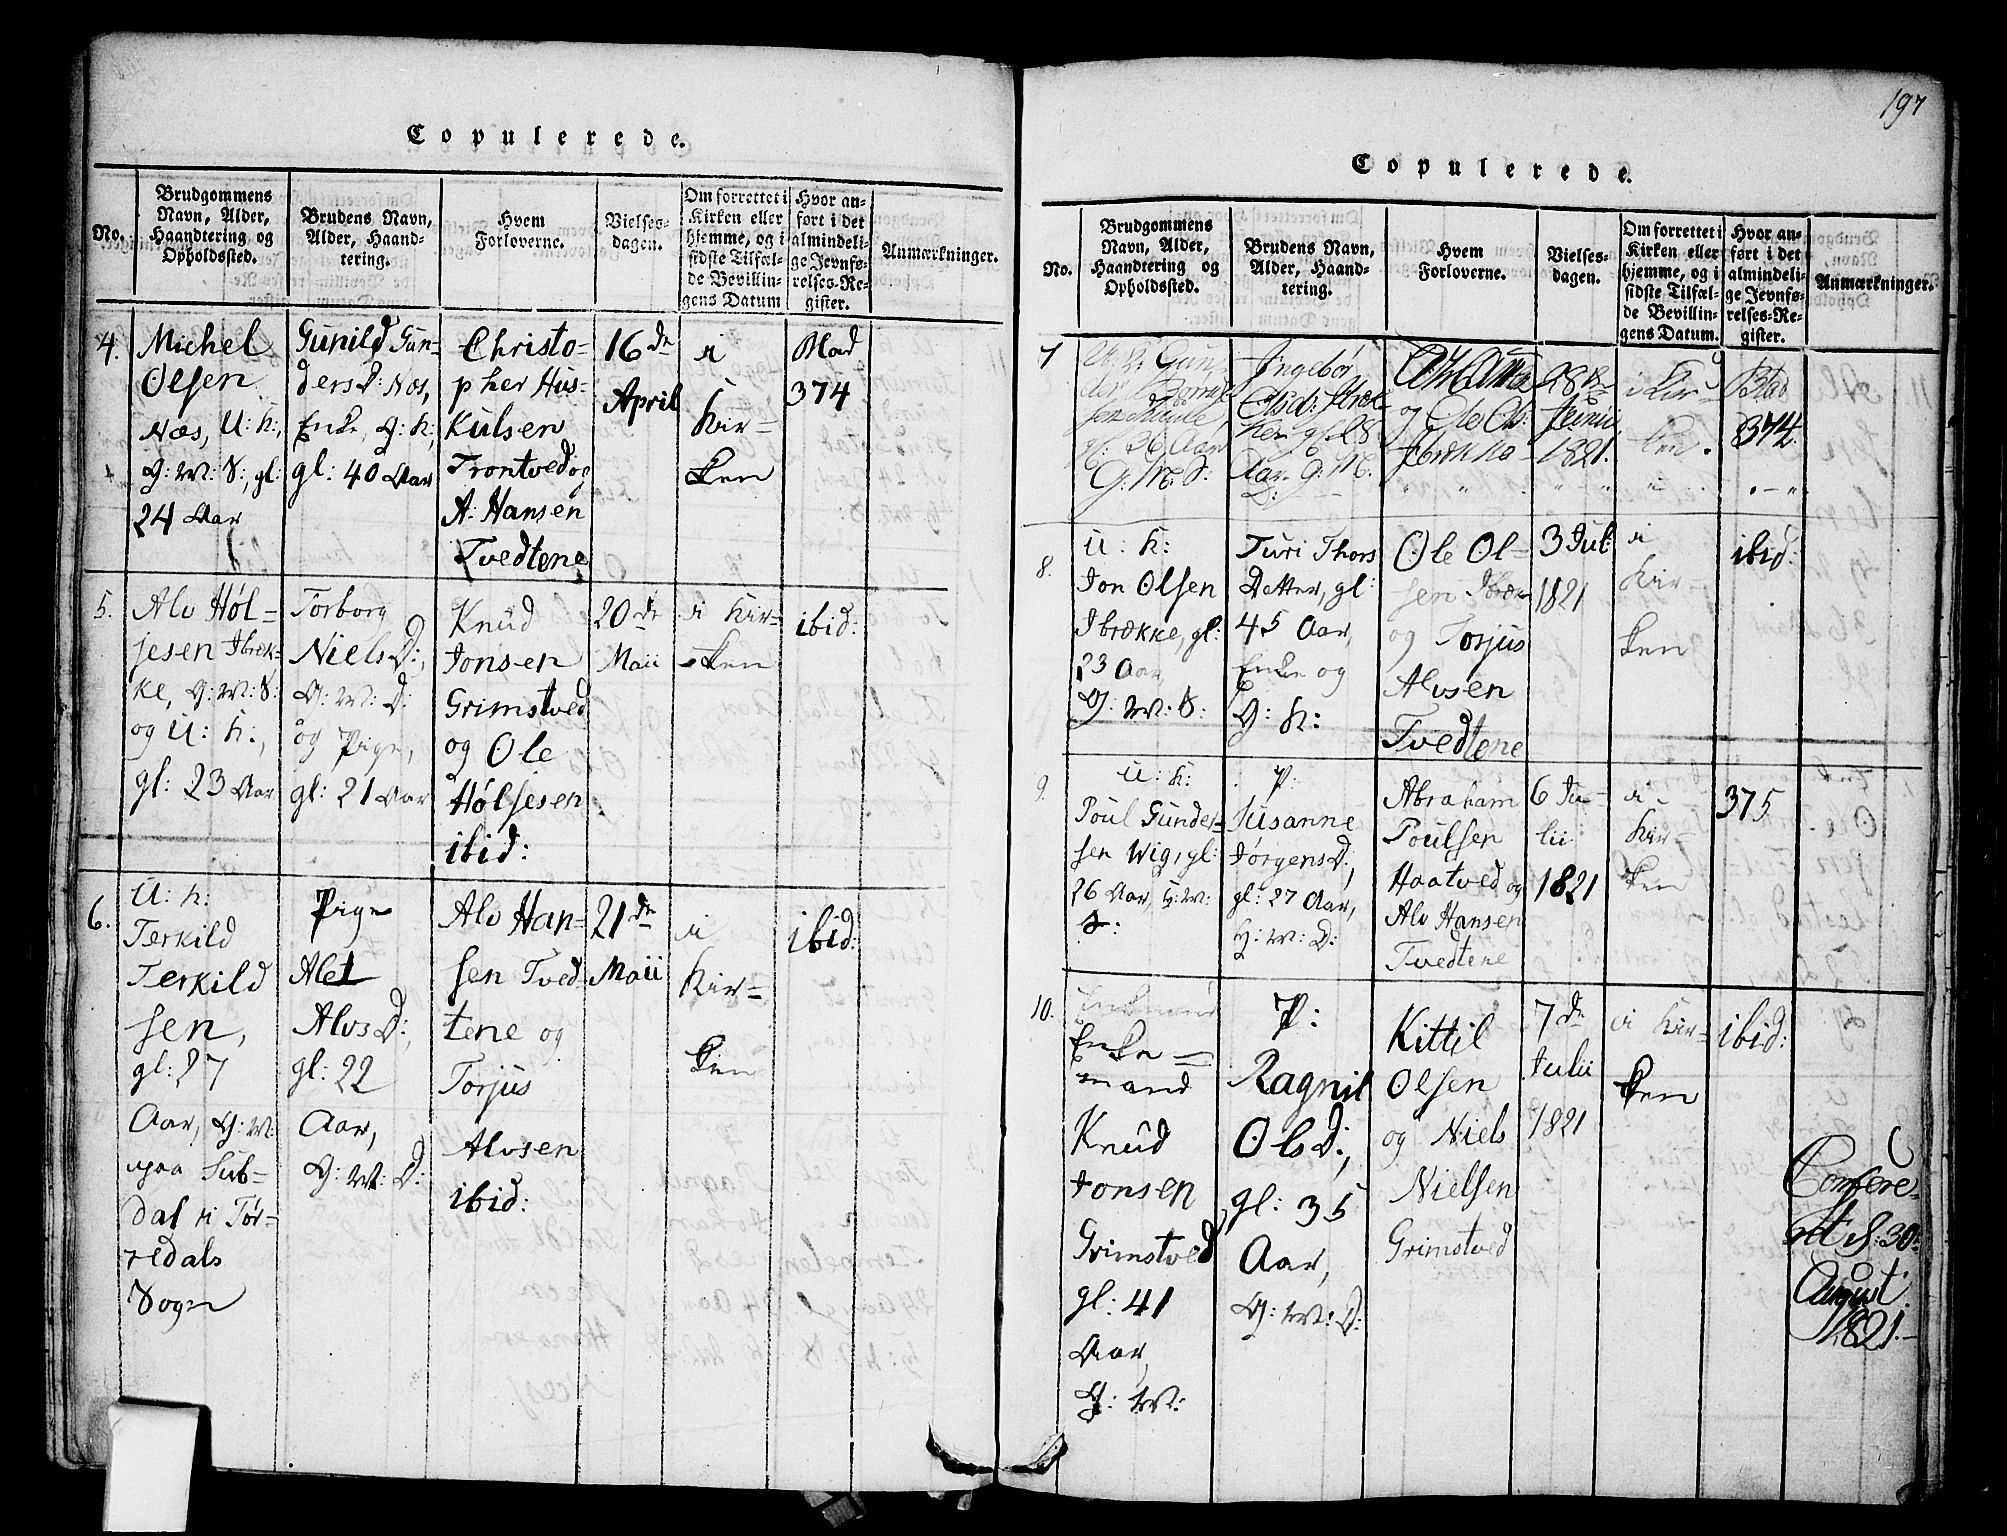 Copulerede.
No.
Brudgommens
Navn, Alder,
Haandtering og
Opholdssted.
Brudens Navn,
Alder, Haand-
tering.
Hvem
Forloverne.
Vielses-
dagen.
Om forrettet i
Kirken eller
hjemme, og i
sidste Tilfæl-
de Bevillin-
gens Datum
Hvor an-
ført i det
almindeli-
ge Jevnfø-
relses-Re-
gister.
Anmærkninger.
4.
Michel
Olsen
Næs, U: K:,
G: W: S:, gl:
24 Aar
Gunild Gun-
dersD: Næs,
Enke, G: K:,
gl: 40 Aar
Christo-
pher Hus-
Kulsen
Trontved og
A: Hansen
Tvedtene
16 de
April
i
Kir-
ken
Blad
374
5.
Alv Høl-
jesen Ibrek-
ke, G: W: S:
og U: K:,
gl: 23 Aar
Torborg
NielsD:,
G: W: D:
og Pige,
gl: 21 Aar
Knud
Jonsen
Grimstved
og Ole
Høljesen
ibid:
20 de
Maii
i Kir-
ken
ibid:
6.
U: K:
Terkild
Terkild
sen,
gl: 27
Aar, G: W:
paa Sub-
dal i Tør-
redals
Sogn
Pige
Alet
AlvsD:,
gl: 22
Aar,
G: W: D:
Alv Han-
sen Tved-
tene og
Torjus
Alvsen
ibid:
21 de
Maii
i
Kir-
ken
ibid:
197
Copulerede.
No.
Brudgommens
Navn, Alder,
Haandtering og
Opholdssted.
Brudens Navn,
Alder, Haand-
tering.
Hvem
Forloverne.
Vielses-
dagen.
Om forrettet i
Kirken eller
hjemme, og i
sidste Tilfæl-
de Bevillin-
gens Datum.
Hvor an-
ført i det
almindeli-
ge Jevnfø-
relses-Re-
gister.
Anmærkninger.
7
U: K: Gun-
gl: 26 Aar
G: W: S:
Ingebør
Olsd: Ibræk-
ken gl: 28
Aar. G: W:
D:
og Ole Ols:
Ibrækka
28 de
Junii
1821.
i Kir-
ken.
Blad
374.
8.
U: K:
Jon Olsen
Ibrække, gl:
23 Aar,
G: W: S.
Turi Thors
Datter, gl:
45 Aar,
Enke og
G: K:
Ole Ol-
sen Ibræk
og Torjus
Alvsen
Tvedtene
3 Jul:
1821
i
Kir-
ken
ibid:
9.
U: K:
Poul Gunder-
sen Wig, gl:
26 Aar, G: W:
S:
P:
Susanne
JørgensD:,
gl: 27 Aar,
G: W: D:
Abraham
Poulsen
Haatved og
Alv Hansen
Tvedtene
6 Ju-
lii
1821
i
Kir-
ken
375
10.
Enkemand
Enke-
mand
Knud
Jonsen
Grimstved
gl: 41
Aar,
G: W:
P:
Ragnil
OlsD:,
gl: 35
Aar,
G: W: D:
Kittil
Olsen
og Niels
Nielsen
Grimstved
7 de
Julii
1821
i Kir-
ken
ibid:
Confere-
ret d: 30
August
1821.